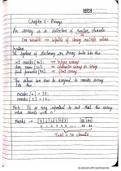 Chapter 8 - Arrays
An array is a collection of similar elements
One variable => Capable of storing multiple values
Syntax
The syntax of declaring an array looks like this
int marks [90];
char name [20];
float percentile [90];
The values can now be assigned to marks array
like this
marks [0] = 33;
marks [1] = 12;
Note: It is very important to note that the array
index starts with 0.
marks →
Total = 90 elements